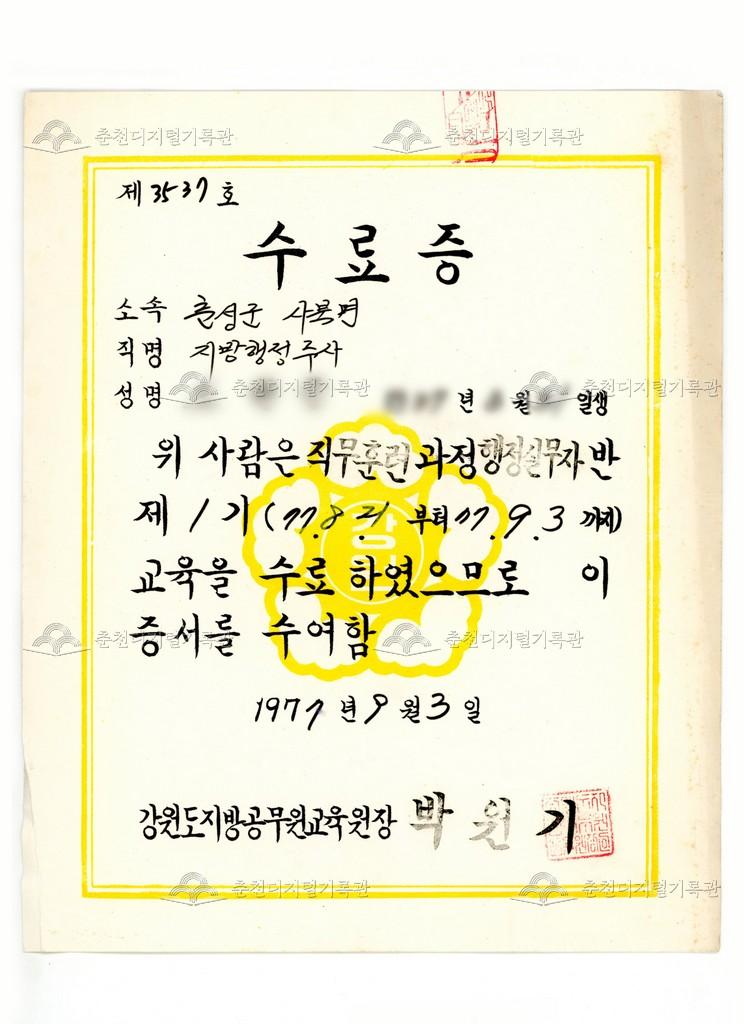 춘천디지털기록관 춘천디지털기록관
제 3537 호
수 료 증
소속 춘성군 사북면
직명 지방행정주사
성명 년 월 일생
춘천디지털기록관 춘천디지털기록관
위 사람은 직무훈련 과정 행정실무자반
제 1 기 (77. 8. 21 부터 77. 9. 3 까지)
교육을 수료 하였으므로 이
증서를 수여함
춘천디지털기록관 춘천디지털기록관
1977 년 9 월 3 일
강원도지방공무원교육원장 박 원 기
춘천디지털기록관 춘천디지털기록관